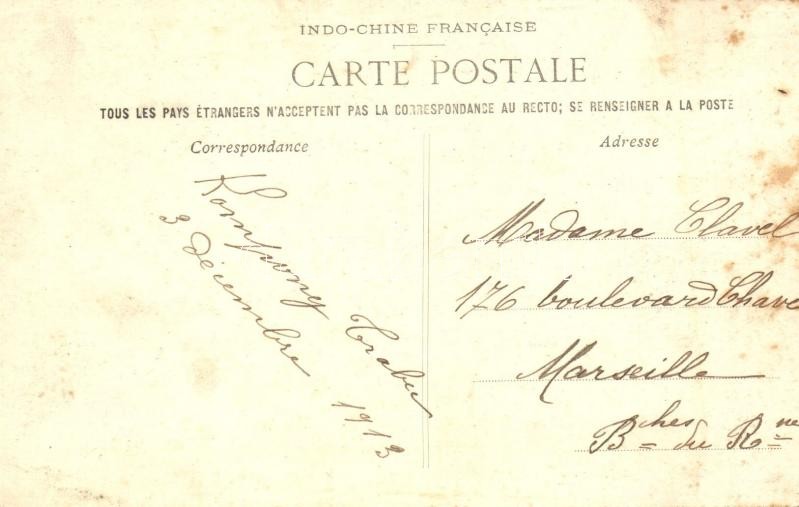 INDO-CHINE FRANÇAISE
CARTE POSTALE
TOUS LES PAYS ÉTRANGERS N'ACCEPTENT PAS LA CORRESPONDANCE AU RECTO; SE RENSEIGNER A LA POSTE
Correspondance
Kompong Trabec
3 décembre 1913
Adresse
Madame Clavel
176 boulevard Chave
Marseille
Bches du Rne